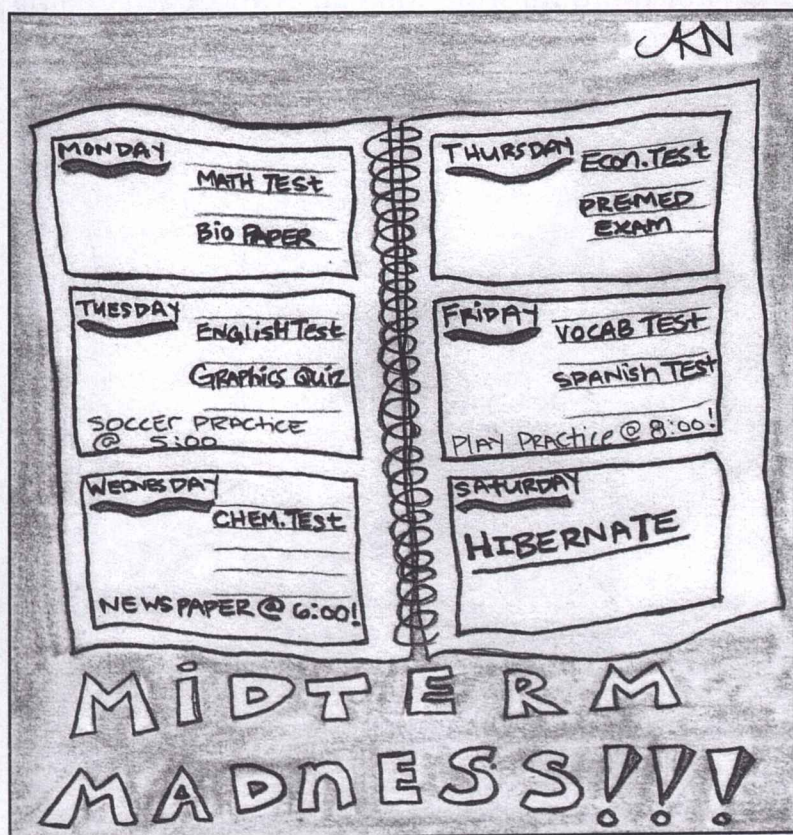 AKN
MONDAY
MATH TEST
BIO PAPER
TUESDAY
ENGLISH TEST
GRAPHICS QUIZ
SOCCER PRACTICE
@ 5:00
WEDNESDAY
CHEM. TEST
NEWSPAPER @ 6:00!
THURSDAY
ECON. TEST
PREMED
EXAM
FRIDAY
VOCAB TEST
SPANISH TEST
PLAY PRACTICE @ 8:00!
SATURDAY
HIBERNATE
MIDTERM
MADNESS!!!